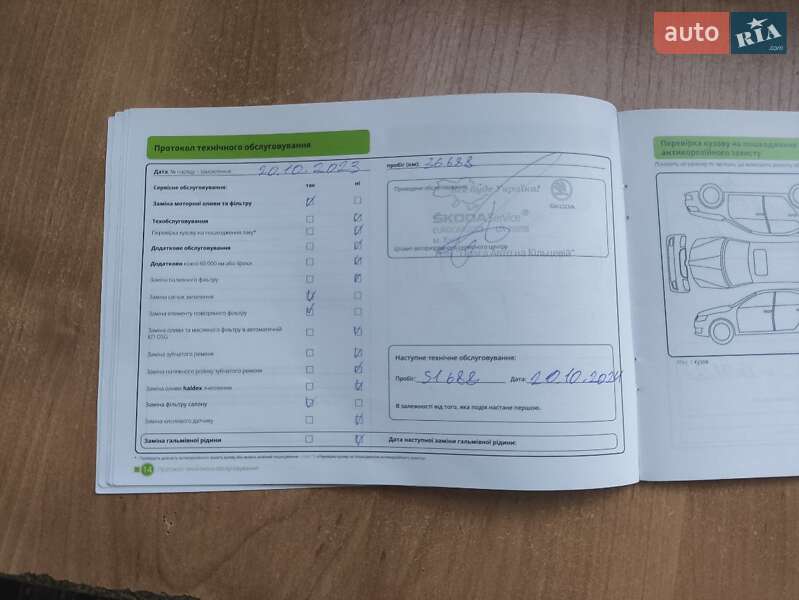 auto RIA .com
Протокол технічного обслуговування
Дата № наряду - замовлення: 20.10.2023
пробіг (км): 36 688
Сервісне обслуговування: так ні
Заміна моторної оливи та фільтру
Техобслуговування
Перевірка кузову на пошкодження лаку*
Додаткове обслуговування
Додатково кожні 60 000 км або 4 роки
Заміна паливного фільтру
Заміна свічок запалення
Заміна елементу повітряного фільтру
Заміна оливи та масляного фільтру в автоматичній
КП DSG
Заміна зубчатого ременя
Заміна натяжного ролику зубчатого ременя
Заміна оливи haldex
Заміна фільтру салону
Заміна кисневого датчику
Заміна гальмівної рідини
Проведене обслуговування
Все буде Україна!
ŠKODA Service®
ŠKODA
Штамп авторизованого сервісного центру
Авто на Кільцевій"
Наступне технічне обслуговування:
Пробіг: 51 688 Дата: 20.10.2024
В залежності від того, яка подія настане першою.
Дата наступної заміни гальмівної рідини:
14 Протокол технічного обслуговування
Перевірка кузову на пошкодження
антикорозійного захисту
кузов